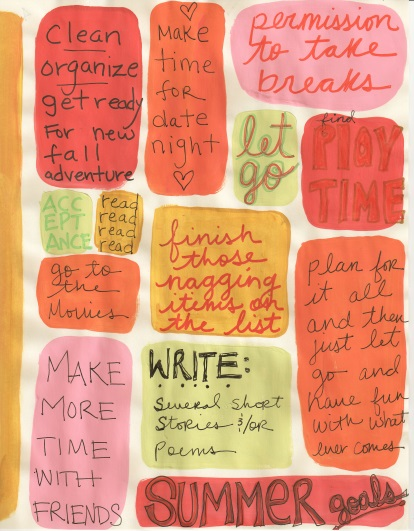 Clean
organize
get ready
For new
fall
adventure
♡
Make
time
for
date
night
♡
permission
to take
breaks
let
go
find
PlAY
TIME
ACC
EPT
ANCE
read
read
read
read
finish
those
nagging
items on
the list
go to
the
Movies
plan for
it all
and then
just let
go and
have fun
with what
ever comes
MAKE
MORE
TIME
WITH
FRIENDS
WRITE:
Several Short
Stories &/OR
Poems
SUMMER goals